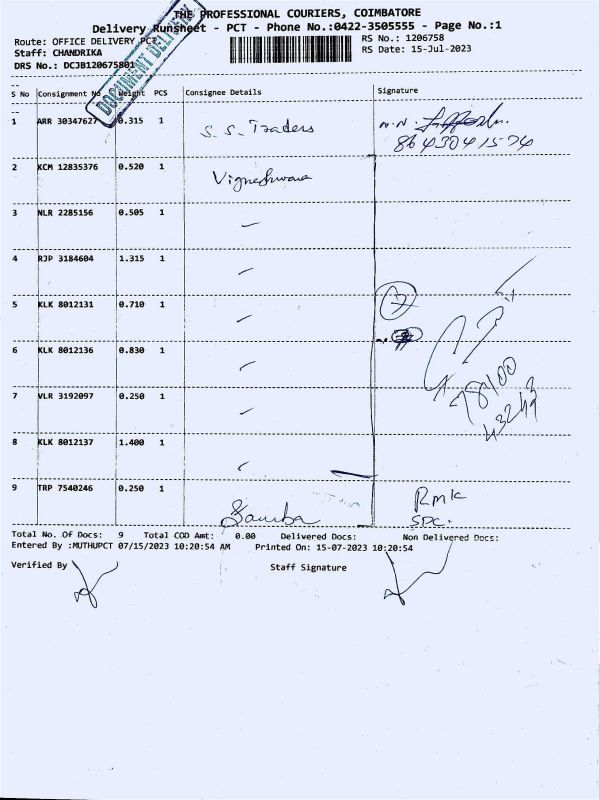 THE PROFESSIONAL COURIERS, COIMBATORE
Delivery Runsheet - PCT - Phone No.:0422-3505555 - Page No.:1
Route: OFFICE DELIVERY PCT
RS No.: 1206758
Staff: CHANDRIKA
RS Date: 15-Jul-2023
DRS No.: DCJB120675801
DOCUMENT DELIVERY
S No Consignment No Weight PCS Consignee Details Signature
1 ARR 30347627 0.315 1 S. S. Traders
8643041574
2 KCM 12835376 0.520 1 Vigneshwara
3 NLR 2285156 0.505 1
4 RJP 3184604 1.315 1
5 KLK 8012131 0.710 1 7
6 KLK 8012136 0.830 1
78100
43249
7 VLR 3192097 0.250 1
8 KLK 8012137 1.400 1
9 TRP 7540246 0.250 1 Samba RMK
SPC.
Total No. Of Docs: 9 Total COD Amt: 0.00 Delivered Docs: Non Delivered Docs:
Entered By :MUTHUPCT 07/15/2023 10:20:54 AM Printed On: 15-07-2023 10:20:54
Verified By Staff Signature